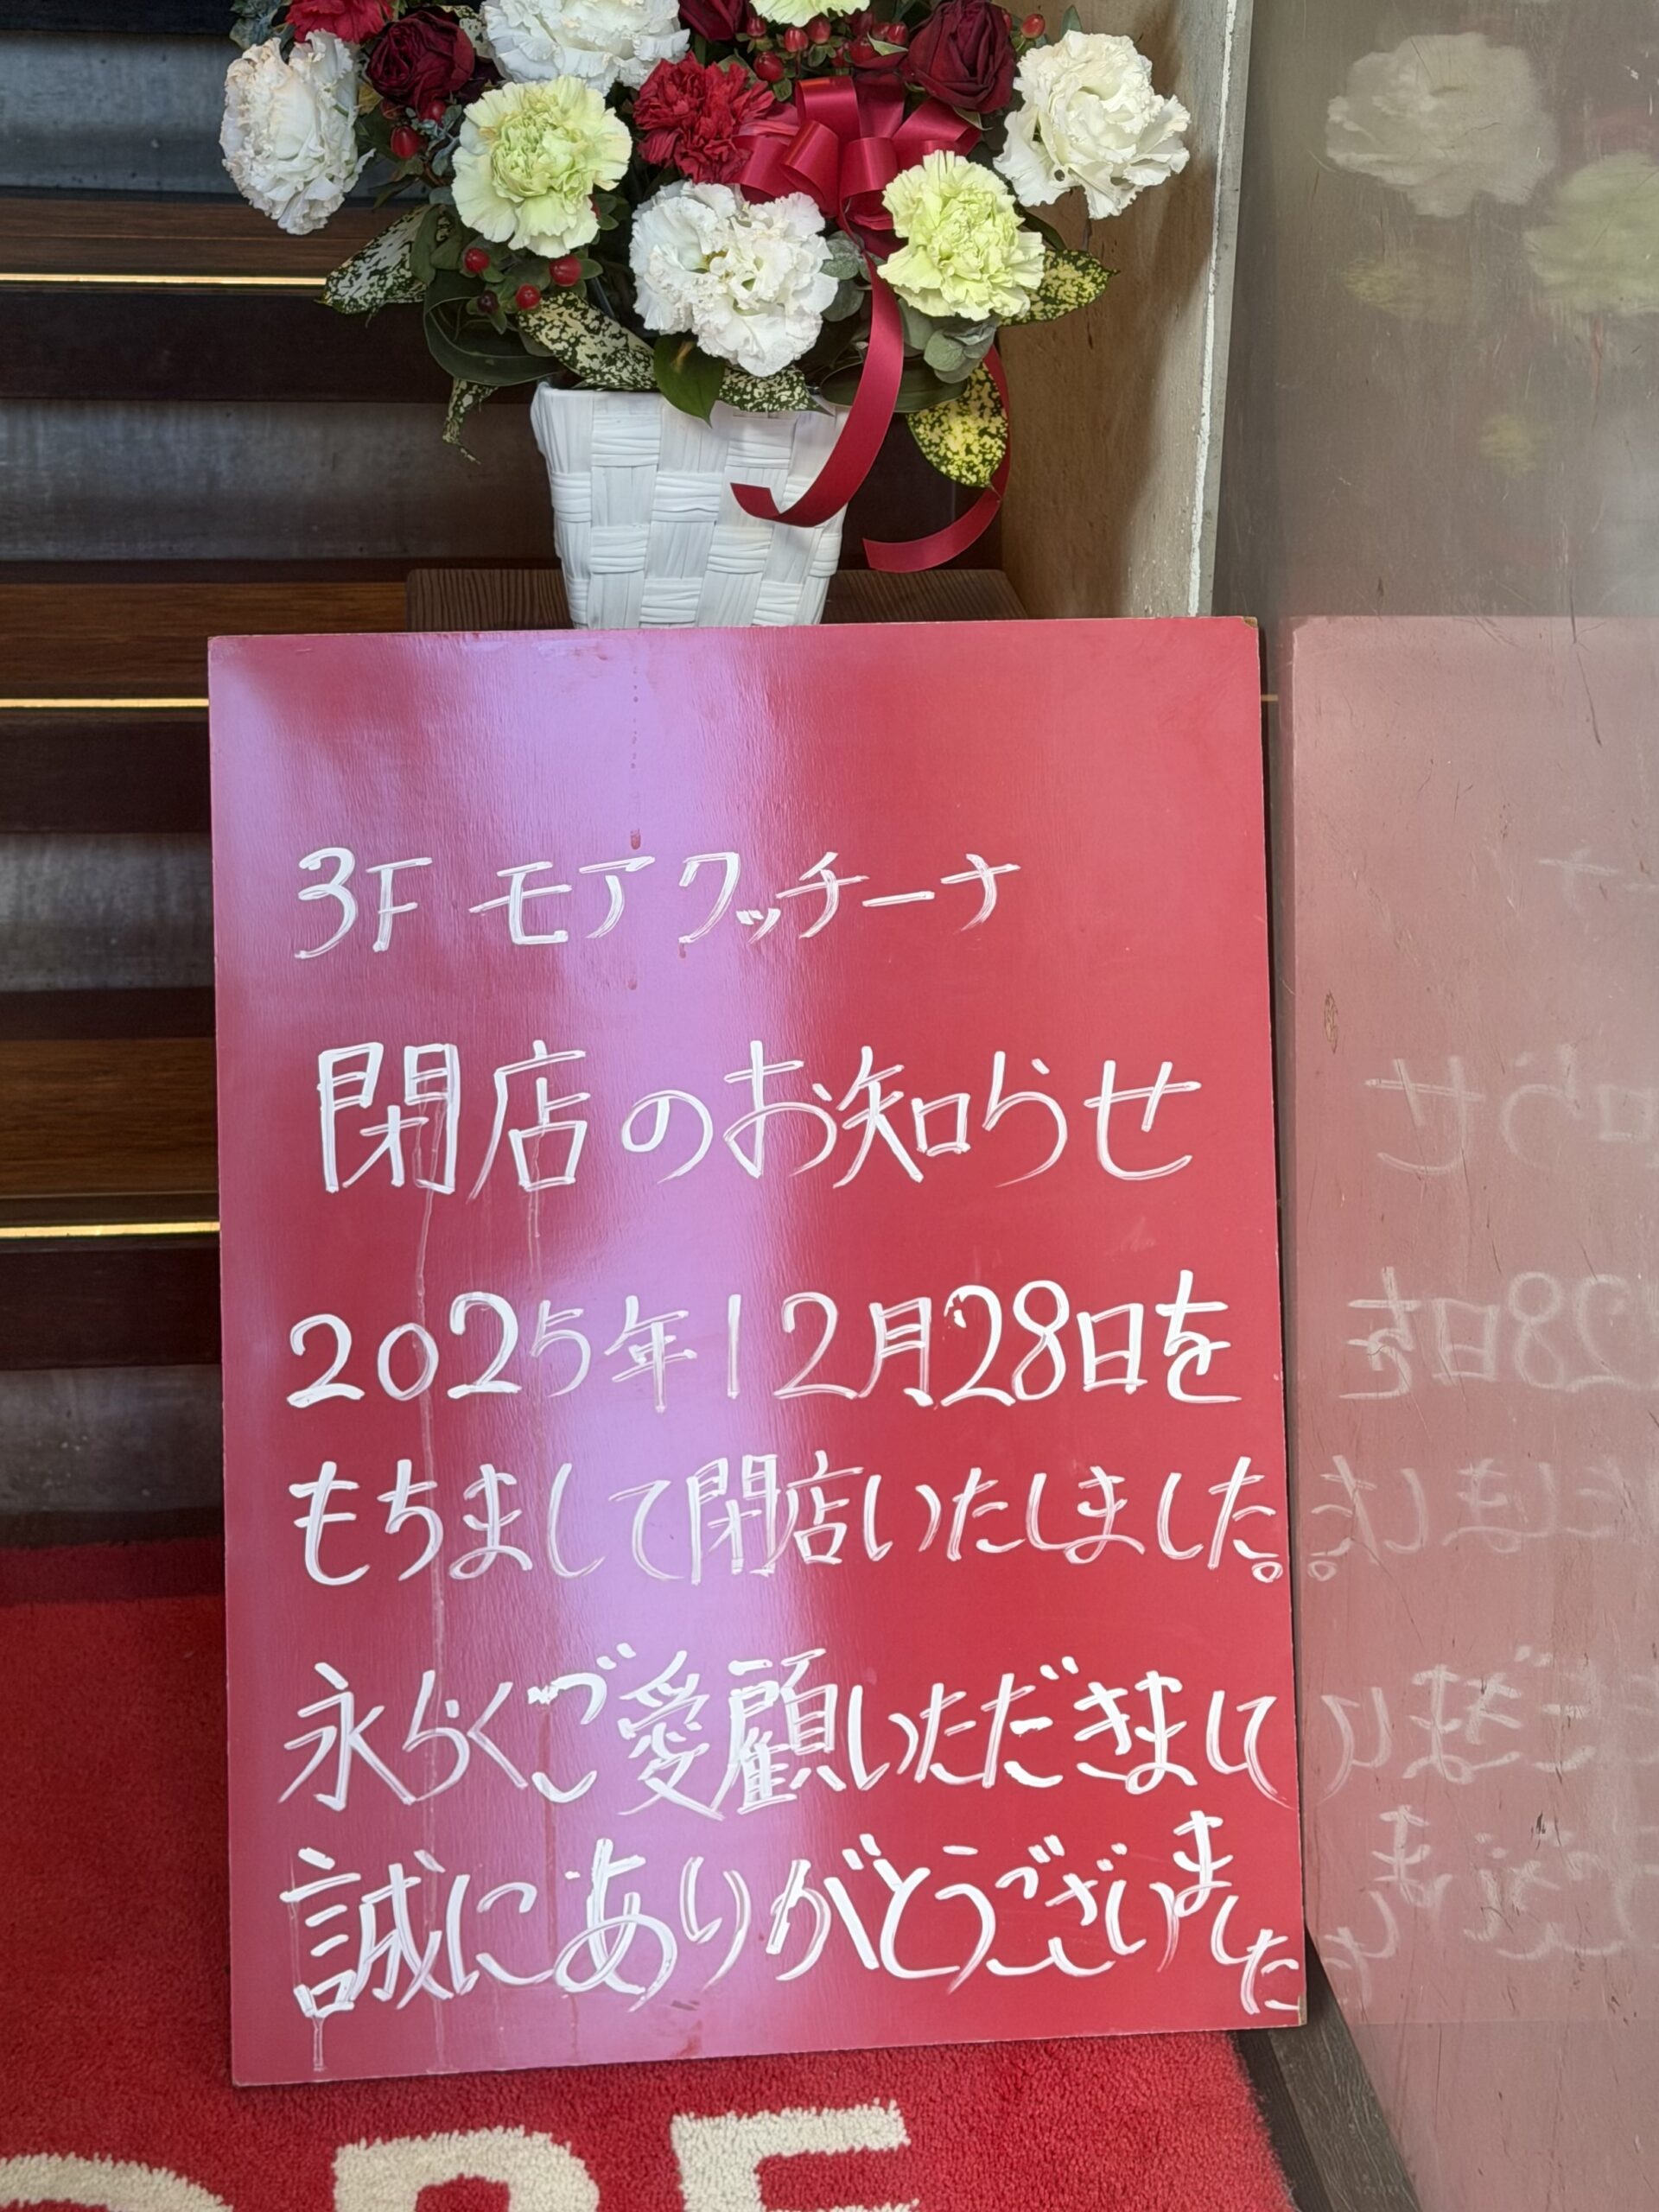 3F モアクッチーナ
閉店のお知らせ
2025年12月28日を
もちまして閉店いたしました。
永らくご愛顧いただきまして
誠にありがとうございました
ORE